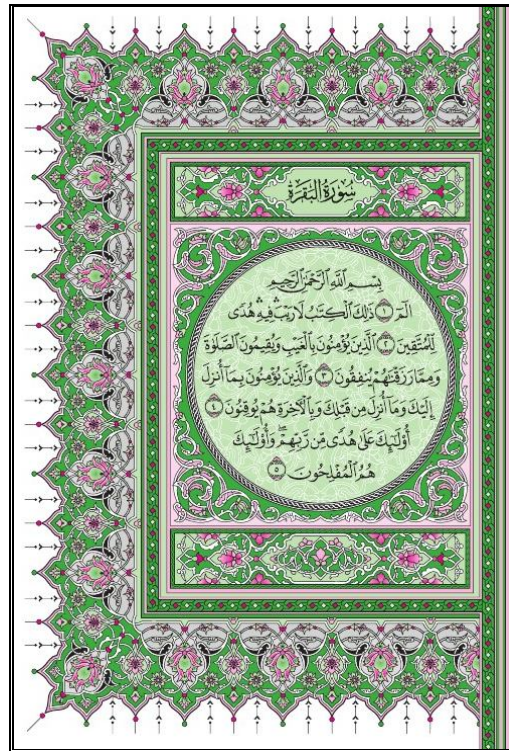 سُورَةُ البَقَرَةِ
بِسۡمِ ٱللَّهِ ٱلرَّحۡمَٰنِ ٱلرَّحِيمِ
الٓمٓ ١ ذَٰلِكَ ٱلۡكِتَٰبُ لَا رَيۡبَۛ فِيهِۛ هُدٗى
لِّلۡمُتَّقِينَ ٢ ٱلَّذِينَ يُؤۡمِنُونَ بِٱلۡغَيۡبِ وَيُقِيمُونَ ٱلصَّلَوٰةَ
وَمِمَّا رَزَقۡنَٰهُمۡ يُنفِقُونَ ٣ وَٱلَّذِينَ يُؤۡمِنُونَ بِمَآ أُنزِلَ
إِلَيۡكَ وَمَآ أُنزِلَ مِن قَبۡلِكَ وَبِٱلۡأٓخِرَةِ هُمۡ يُوقِنُونَ ٤
أُوْلَٰٓئِكَ عَلَىٰ هُدٗى مِّن رَّبِّهِمۡۖ وَأُوْلَٰٓئِكَ
هُمُ ٱلۡمُفۡلِحُونَ ٥